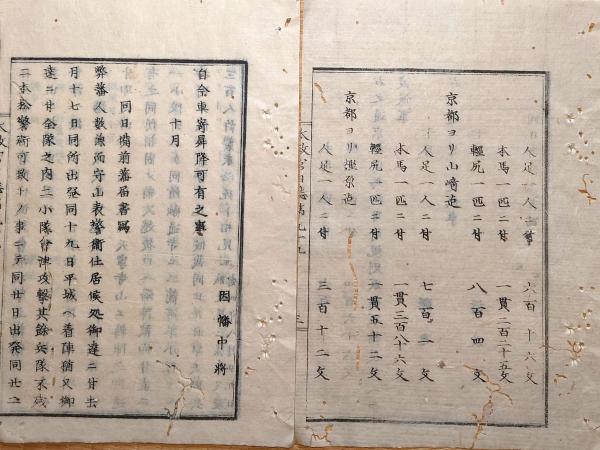 人足一人ニ付 六百十六文
本馬一匹ニ付 一貫二百二十五文
軽尻一匹ニ付 八百四文
京都ヨリ山崎迄
人足一人ニ付 七百 文
本馬一匹ニ付 一貫三百八十六文
軽尻一匹ニ付 一貫五十二文
京都ヨリ 迄
人足一人ニ付 三百十二文
自今車寄昇降可有之事
因幡中将
十月
同日備前藩届書写
弊藩人数 守山表警衛仕居候処御達ニ付去
月十七日同所出発同十九日平城ヘ着陣猶又御
達ニ付全隊之内三小隊會津攻撃其餘兵隊不残
二本松警衛可致 同廿日出発同廿二